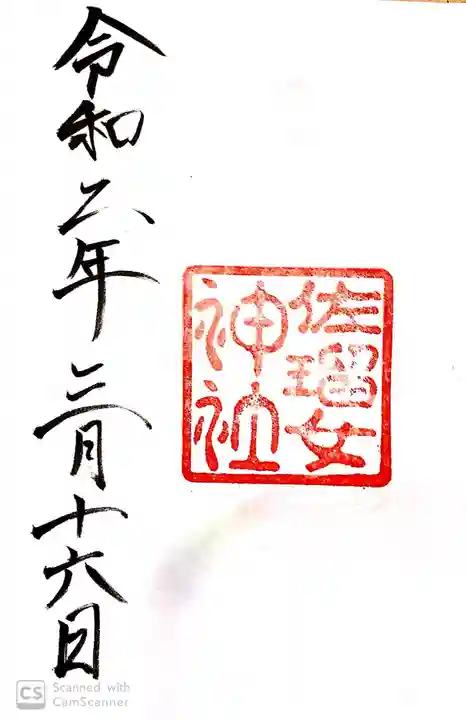 佐瑠女
神社
令和二年三月十六日
CS Scanned with
CamScanner